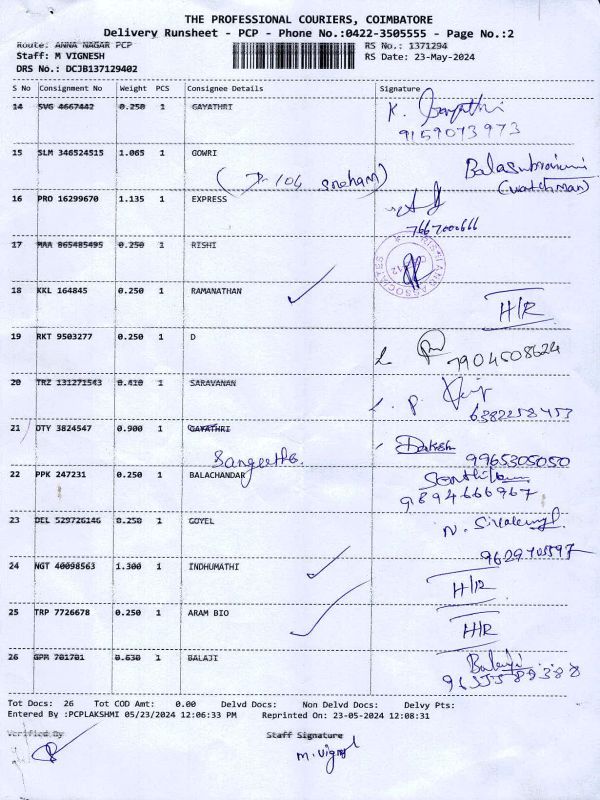 THE PROFESSIONAL COURIERS, COIMBATORE
Delivery Runsheet - PCP - Phone No.:0422-3505555 - Page No.:2
Route: ANNA NAGAR PCP RS No.: 1371294
Staff: M VIGNESH RS Date: 23-May-2024
DRS No.: DCJB137129402
S No Consignment No Weight PCS Consignee Details Signature
14 SVG 4667442 0.250 1 GAYATHRI K. Gayathri
9159073973
15 SLM 346524515 1.065 1 GOWRI Balasubramani
(watchman)
16 PRO 16299670 1.135 1 EXPRESS
7667000666
17 MAA 865485495 0.250 1 RISHI
ASSOCIATES
18 KKL 164845 0.250 1 RAMANATHAN H/R
19 RKT 9503277 0.250 1 D
7904508624
20 TRZ 131271543 0.410 1 SARAVANAN
6382258453
21 DTY 3824547 0.900 1 GAYATHRI
Sangeetha. 9965305050
22 PPK 247231 0.250 1 BALACHANDAR
9894666967
23 DEL 529726146 0.250 1 GOYEL
24 NGT 40098563 1.300 1 INDHUMATHI H/R
25 TRP 7726678 0.250 1 ARAM BIO H/R
26 GPR 701701 0.630 1 BALAJI Balaji
Tot Docs: 26 Tot COD Amt: 0.00 Delvd Docs: Non Delvd Docs: Delvy Pts:
Entered By :PCPLAKSHMI 05/23/2024 12:06:33 PM Reprinted On: 23-05-2024 12:08:31
Verified By Staff Signature